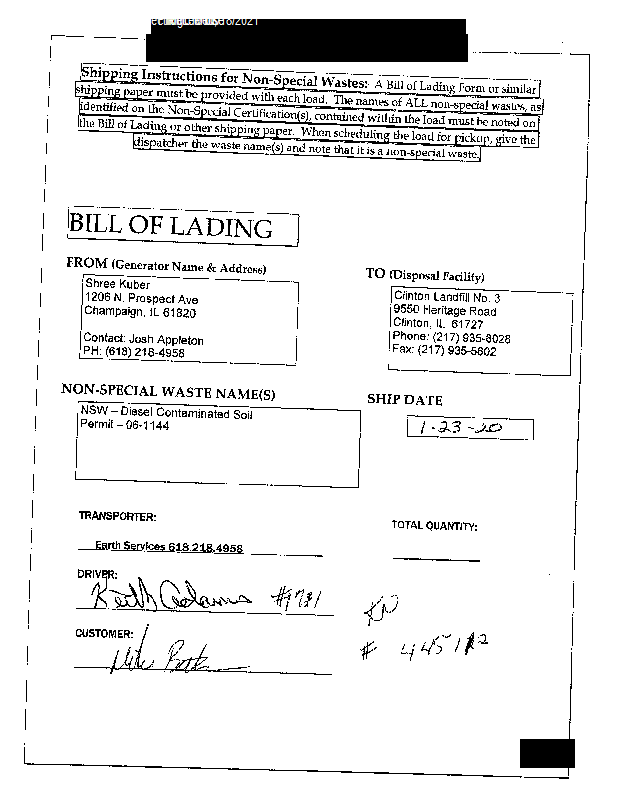 Shipping Instructions for Non-Special Wastes: A Bill of Lading Form or similar
shipping paper must be provided with each load. The names of ALL non-special wastes, as
identified on the Non-Special Certification(s), contained within the load must be noted on
the Bill of Lading or other shipping paper. When scheduling the load for pickup, give the
dispatcher the waste name(s) and note that it is a non-special waste.
BILL OF LADING
FROM (Generator Name & Address)
Shree Kuber
1206 N. Prospect Ave
Champaign, IL 61820
Contact: Josh Appleton
PH: (618) 218-4958
TO (Disposal Facility)
Clinton Landfill No. 3
9550 Heritage Road
Clinton, IL 61727
Phone: (217) 935-8028
Fax: (217) 935-5602
NON-SPECIAL WASTE NAME(S)
NSW – Diesel Contaminated Soil
Permit – 06-1144
SHIP DATE
1-23-20
TRANSPORTER:
Earth Services 618.218.4958
TOTAL QUANTITY:
DRIVER:
Keith Adams
CUSTOMER:
Mike